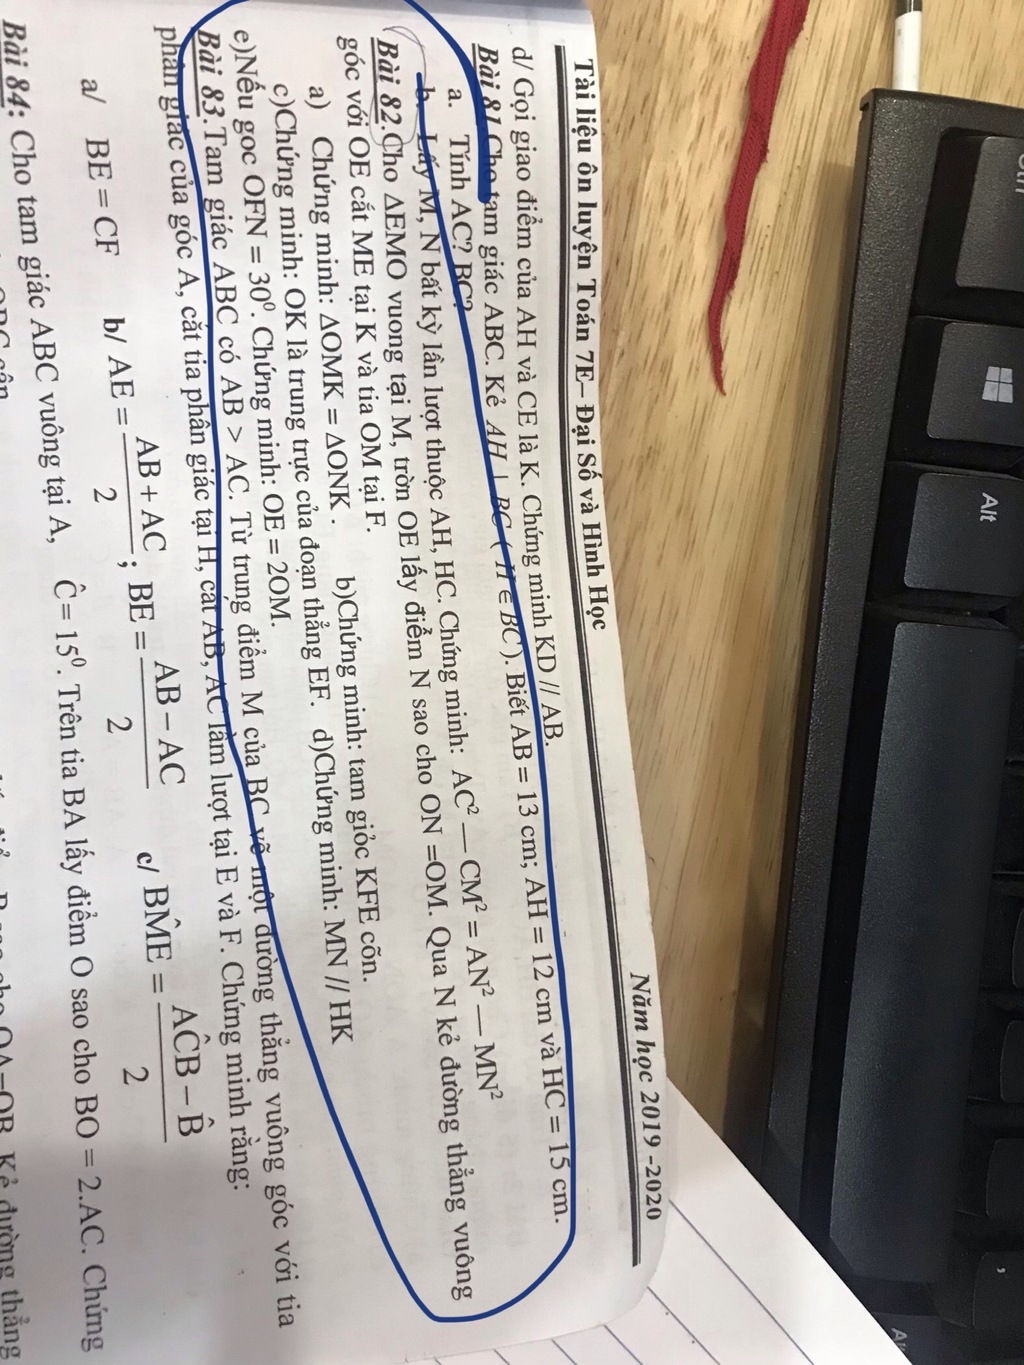 Tài liệu ôn luyện Toán 7E– Đại Số và Hình Học
Năm học 2019 -2020
d/ Gọi giao điểm của AH và CE là K. Chứng minh KD // AB.
Bài 81.Cho tam giác ABC. Kẻ AH ⊥ BC ( H ∈ BC ). Biết AB = 13 cm; AH = 12 cm và HC = 15 cm.
a. Tính AC? BC?
b. Lấy M, N bất kỳ lần lượt thuộc AH, HC. Chứng minh: AC² — CM² = AN² — MN²
Bài 82.Cho ΔEMO vuong tại M, trờn OE lấy điểm N sao cho ON =OM. Qua N kẻ đường thẳng vuông
góc với OE cắt ME tại K và tia OM tại F.
a) Chứng minh: ΔOMK = ΔONK . b)Chứng minh: tam giỏc KFE cõn.
c)Chứng minh: OK là trung trực của đoạn thẳng EF. d)Chứng minh: MN // HK
e)Nếu goc OFN = 30⁰. Chứng minh: OE = 2OM.
Bài 83.Tam giác ABC có AB > AC. Từ trung điểm M của BC vẽ một đường thẳng vuông góc với tia
phân giác của góc A, cắt tia phân giác tại H, cắt AB, AC lầm lượt tại E và F. Chứng minh rằng:
a/ BE = CF b/ AE = (AB + AC)/2 ; BE = (AB − AC)/2 c/ BM̂E = (AĈB − B̂)/2
Bài 84: Cho tam giác ABC vuông tại A, Ĉ = 15⁰. Trên tia BA lấy điểm O sao cho BO = 2.AC. Chứng
cân
OA=OB. Kẻ đường thẳng
Alt